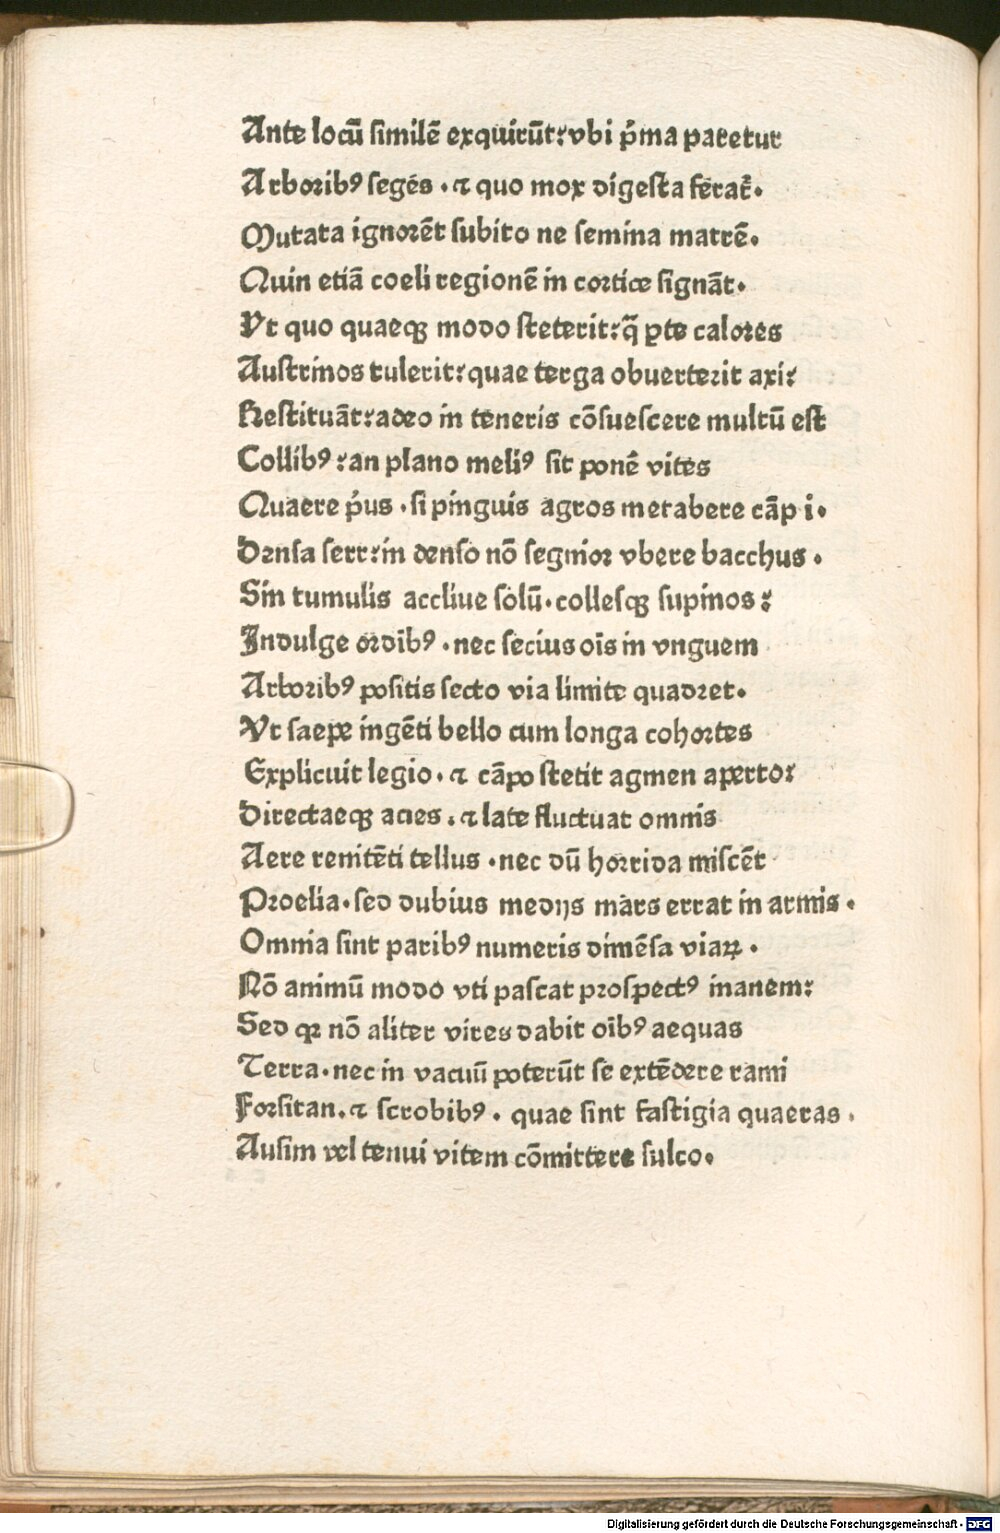 Ante locū ſimilē exquirūt:vbi p̄ma paretur
Arborib⁹ ſegés · ⁊ quo mox digeſta ferat̄·
Mutata ignorēt ſubito ne ſemina matrē·
Quin etiā coeli regionē in cortice ſignāt·
Vt quo quaeqꝫ modo ſteterit:q̄ ꝑte calores
Auſtrinos tulerit:quae terga obuerterit axi:
Reſtituāt:adeo in teneris cōſueſcere multū eſt
Collib⁹:an plano meli⁹ ſit ponē vites
Quaere p̄us ·ſi pinguis agros metabere cāp i·
Denſa ſerr:in denſo nō ſegnior vbere bacchus ·
Sin tumulis accliue ſolū·colleſqꝫ ſupinos:
Indulge ordīb⁹ ·nec ſecius oīs in vnguem
Arborib⁹ poſitis ſecto via limite quadret·
Vt ſaepe ingēti bello cum longa cohortes
Explicuit legio· ⁊ cāpo ſtetit agmen aperto:
Directaeqꝫ acies · ⁊ late fluctuat omnis
Aere renitēti tellus ·nec dū horrida miſcēt
Proelia·ſed dubius medijs mars errat in armis ·
Omnia ſint parib⁹ numeris dimēſa viaꝝ ·
Nō animū modo vti paſcat proſpect⁹ inanem:
Sed qꝛ nō aliter vires dabit oīb⁹ aequas
Terra·nec in vacuū poterūt ſe extēdere rami
Forſitan·⁊ ſcrobib⁹· quae ſint faſtigia quaeras ·
Auſim vel tenui vitem cōmittere ſulco·
Digitalisierung gefördert durch die Deutsche Forschungsgemeinschaft - DFG